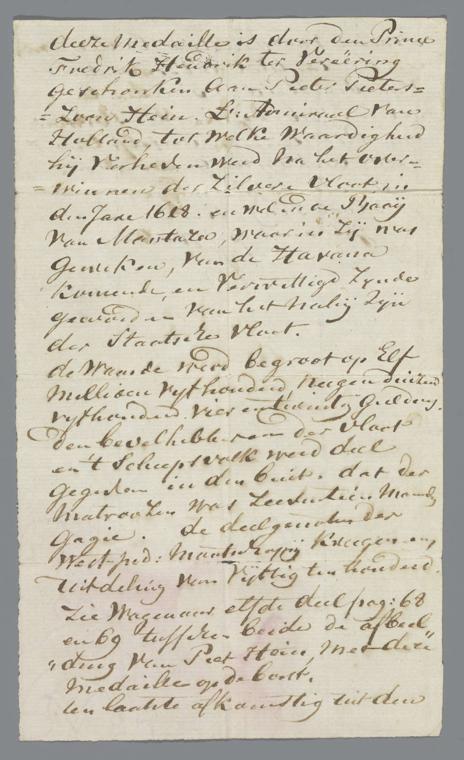 deeze Medaille is door den Prince
Fredrik Hendrik ter Vereëring
geschonken Aan Pieter Pieters=
=Zoon Hein. Lt Admiraal van
Holland, tot welke waardigheid
hij Verheven werd Na het over=
=winnen der Zilvere Vloot in
den Jare 1628. en wel in de Baaij
van Mantaza, waarin zij was
Geweken, van de Havana
komende, en Verwittigd Zynde
geworden van het nabij Zijn
der Staatsche Vloot.
de Waarde werd begroot op Elf
Millioen vijfhonderd Negen duizend
vijfhonderd vier en twintig Guldens.
den bevelhebberen der Vloot
en 't Scheepsvolk werd deel
gegeven in den buit. dat der
Matroozen was Zeventien Maanden
Gagie. de deelgenoten der
West-Ind: Maatschappij kregen een
Uitdeling van Vijftig ten honderd.
Zie Wagenaar elfde deel pag: 68
en 69 tusschen beide de afbeel
"ding van Piet Hein, met deze"
Medaille op de borst.
ten laatste afkomstig uit den